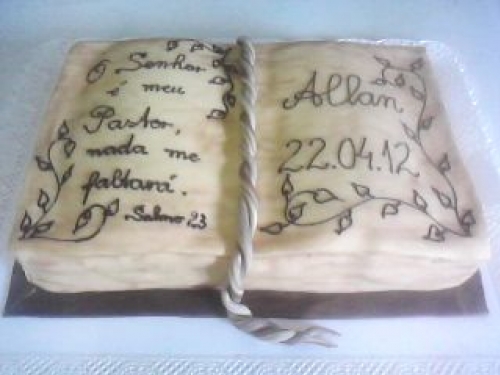 O Senhor
é meu
Pastor,
nada me
faltará.
Salmo 23
Allan,
22.04.12